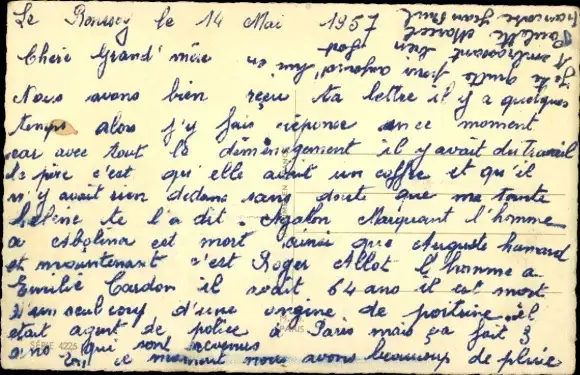 Le Ronssoy le 14 Mai 1957
Chère Grand' mère
Nous avons bien reçu ta lettre il y a quelque
temps alors j'y fais réponse en ce moment
car avec tout le déménagement il y avait du travail
le pire c'est qu'elle avait un coffre et qu'il
n'y avait rien dedans sans doute que ma tante
Hélène te l'a dit. Agalon Marquant l'homme
a Abolina est mort ainsi que Auguste hamard
et maintenant c'est Roger Allot l'homme a
Emilie Cardon il avait 64 ans il est mort
d'un seul coup d'une angine de poitrine il
était agent de police a Paris mais ça fait 3
ans qu'il sont revenus
En ce moment nous avons beaucoup de pluie
Je te quitte pour aujourd'hui en
t'embrassant bien fort
Paulette Marcel
Françoise Jean Paul
SÉRIE 4225
PARIS